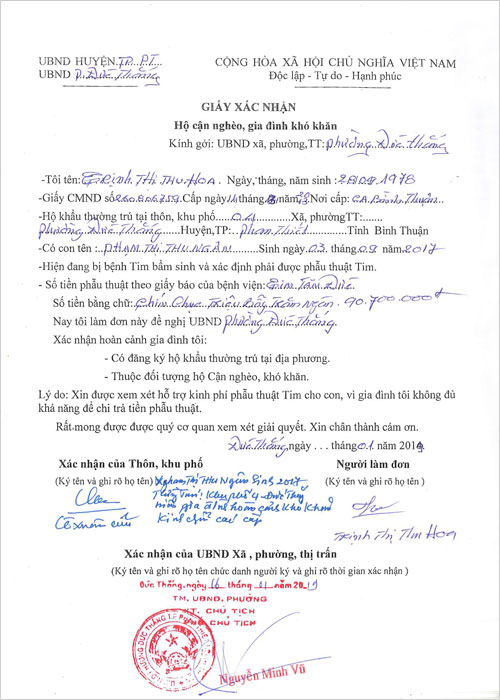 UBND HUYỆN.TP...P.T...
UBND P. Đức Thắng
CỘNG HÒA XÃ HỘI CHỦ NGHĨA VIỆT NAM
Độc lập - Tự do - Hạnh phúc
GIẤY XÁC NHẬN
Hộ cận nghèo, gia đình khó khăn
Kính gởi: UBND xã, phường,TT: phường Đức Thắng
-Tôi tên: Trịnh Thị Thu Hoa. Ngày, tháng, năm sinh : 1978
-Giấy CMND số Cấp ngày năm Nơi cấp: C.A. Bình Thuận
-Hộ khẩu thường trú tại thôn, khu phố....04.........Xã, phườngTT:.......
phường Đức Thắng......Huyện,TP:...Phan Thiết..........Tỉnh Bình Thuận
-Có con tên :..PHẠM THỊ THU NGÂN........Sinh ngày 03. tháng .09 năm 2017
-Hiện đang bị bệnh Tim bẩm sinh và xác định phải được phẫu thuật Tim.
- Số tiền phẫu thuật theo giấy báo của bệnh viện: Tim Tâm Đức
Số tiền bằng chữ: Chín Chục Triệu Bảy Trăm Ngàn. 90.700.000đ
Nay tôi làm đơn này đề nghị UBND phường Đức Thắng
Xác nhận hoàn cảnh gia đình tôi:
- Có đăng ký hộ khẩu thường trú tại địa phương.
- Thuộc đối tượng hộ Cận nghèo, khó khăn.
Lý do: Xin được xem xét hỗ trợ kinh phí phẫu thuật Tim cho con, vì gia đình tôi không đủ
khả năng để chi trả tiền phẫu thuật.
Rất mong được được quý cơ quan xem xét giải quyết. Xin chân thành cám ơn.
Đức Thắng, ngày . . . tháng 01 năm 2019
Xác nhận của Thôn, khu phố
Người làm đơn
(Ký tên và ghi rõ họ tên) Phạm Thị Thu Ngân Sinh 2017
(Ký tên và ghi rõ họ tên)
khu phố 4 Đức Thắng
gia đình hoàn cảnh khó khăn
Trịnh Thị Thu Hoa
Xác nhận của UBND Xã , phường, thị trấn
(Ký tên và ghi rõ họ tên chức danh người ký và ghi rõ thời gian xác nhận )
Đức Thắng, ngày 16 tháng 01 năm 2019
TM. UBND. PHƯỜNG
KT. CHỦ TỊCH
CHỦ TỊCH
Nguyễn Minh Vũ